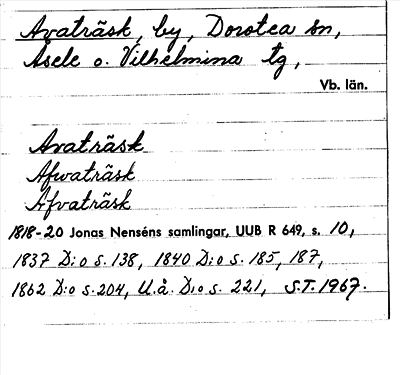 Avaträsk, by, Dorotea sn,
Åsele o. Vilhelmina tg,
Vb. län.
Avaträsk
Afwaträsk
Afvaträsk
1818-20 Jonas Nenséns samlingar, UUB R 649, s. 10,
1837 D:o s. 138, 1840 D:o s. 185, 187,
1862 D:o s. 204, U.å. D:o s. 221, S.T. 1967.